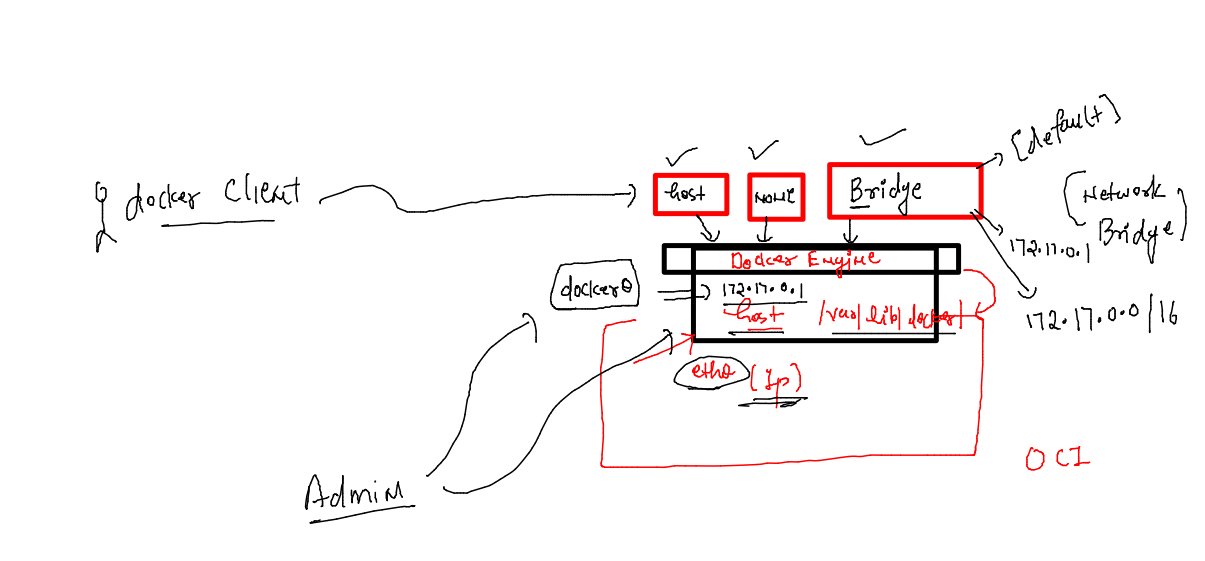 [default]
docker Client
host
NONE
Bridge
[Network
Bridge]
172.17.0.1
Docker Engine
docker0
172.17.0.1
host
/var/lib/docker/
172.17.0.0/16
eth0
(Ip)
OCI
Admin